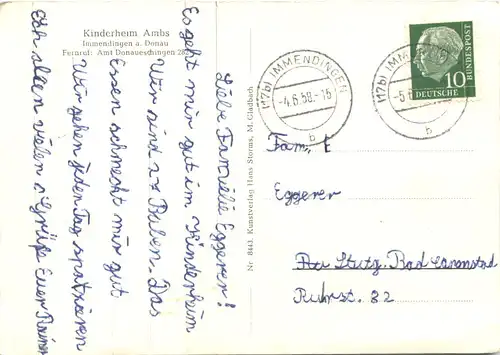 Kinderheim Ambs
Immendingen a. Donau
Fernruf: Amt Donaueschingen
Liebe Familie Eggerer!
Es geht mir gut im Kinderheim
Wir sind 17 Buben. Das
Essen schmeckt mir gut
Wir gehen jeden Tag spatzieren
Euch allen viele Grüße Euer Rainer
Nr. 8443. Kunstverlag Hans Storms, M. Gladbach
(17b) IMMENDINGEN
-4.6.58.-15
b
(17b) IMMENDINGEN
b
10
DEUTSCHE
BUNDESPOST
Fam. E
Eggerer
Stutg. Bad Cannstad
Ruhrst. 82